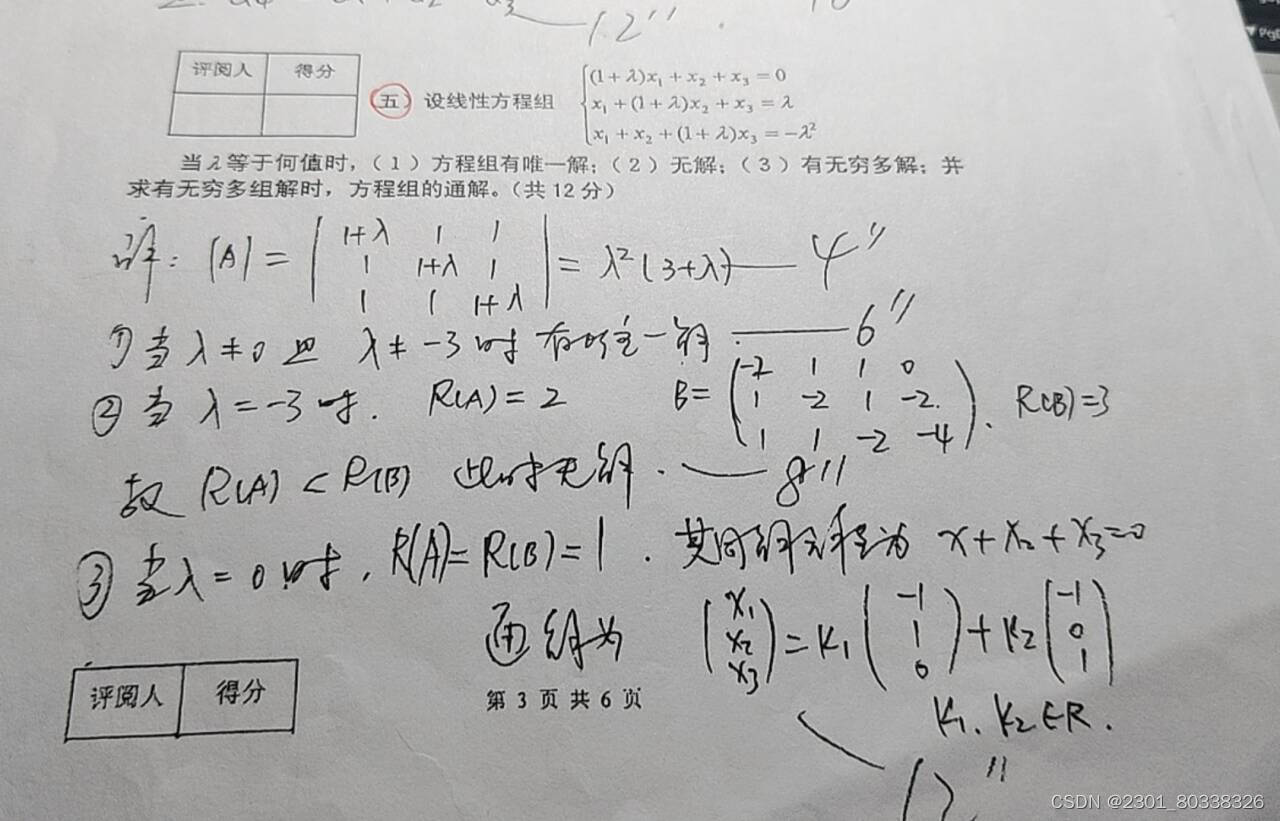 12"
评阅人 得分
五 设线性方程组
(1+λ)x₁+x₂+x₃=0
x₁+(1+λ)x₂+x₃=λ
x₁+x₂+(1+λ)x₃=-λ²
当λ等于何值时,(1)方程组有唯一解;(2)无解;(3)有无穷多解;并
求有无穷多组解时,方程组的通解。(共12分)
解: |A| = | 1+λ 1 1 |
| 1 1+λ 1 | = λ²(3+λ) — 4"
| 1 1 1+λ |
① 当 λ≠0 且 λ≠-3 时 有唯一解. — 6"
② 当 λ=-3 时. R(A)=2 B= ( -2 1 1 0
1 -2 1 -2.
1 1 -2 -4 ). R(B)=3
故 R(A)<R(B) 此时无解. — 8"
③ 当 λ=0 时, R(A)=R(B)=1. 其同解方程为 x+x₂+x₃=0
通解为 (x₁ x₂ x₃) = k₁ (-1 1 0) + k₂ (-1 0 1)
k₁, k₂∈R.
12"
评阅人 得分
第 3 页 共 6 页
CSDN @2301_80338326